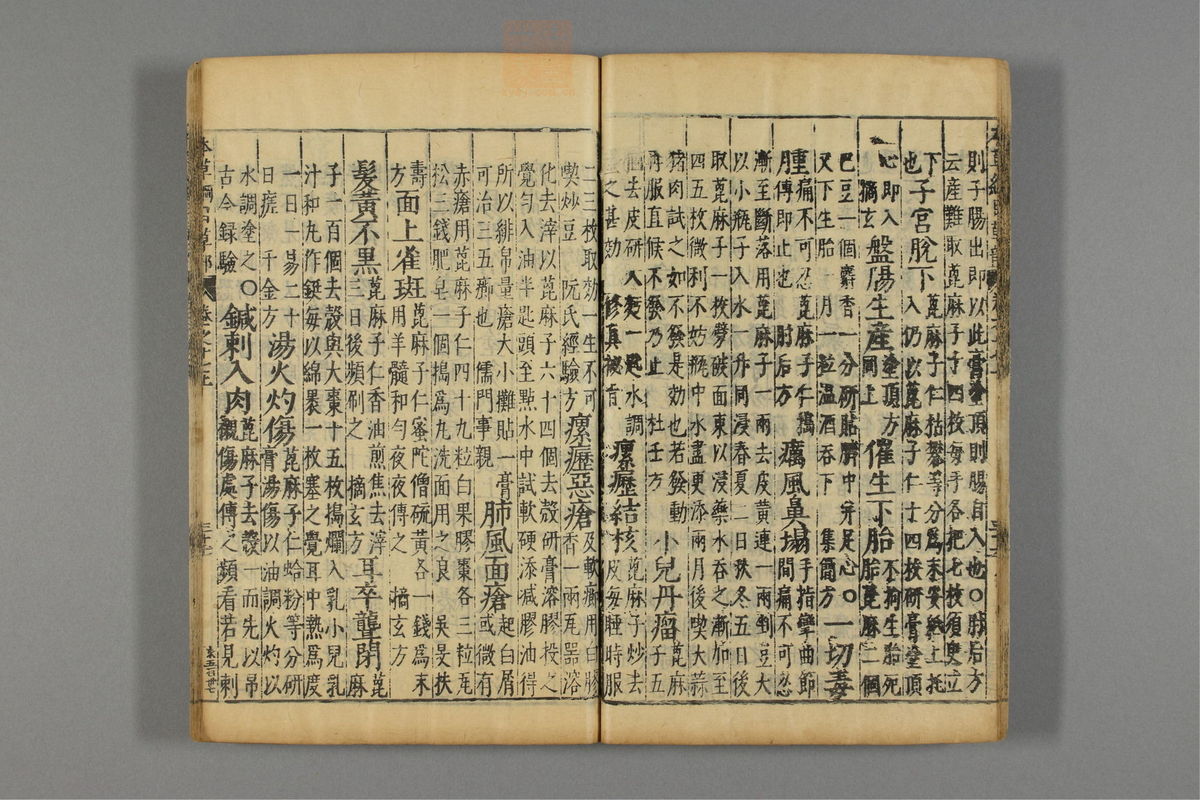 則子腸出即以此膏塗頂則腸自入也〇肘后方
云産難取蓖麻子十四枚每手各把七枚須臾立
下也
子宮脫下
蓖麻子仁枯礬等分爲末安紙上托
入仍以蓖麻子仁十四枚研膏塗頂
心即入
摘玄
盤腸生産
塗頂方
同上
催生下胎
不拘生胎死
胎蓖麻二個
巴豆一個麝香一分研貼臍中并足心〇
又下生胎一月一粒温酒吞下 集簡方
一切毒
腫
痛不可忍蓖麻子仁搗
傅即止也 肘后方
癘風鼻塌
手指攣曲節
間痛不可忍
漸至斷落用蓖麻子一兩去皮黄連一兩剉豆大
以小瓶子入水一升同浸春夏三日秋冬五日後
取蓖麻子一枚劈破面東以浸藥水吞之漸加至
四五枚微利不妨瓶中水盡更添兩月後喫大蒜
猪肉試之如不發是効也若發動
再服直候不發乃止 杜壬方
小兒丹瘤
蓖麻
子五
個去皮研入麪一匙水調
之甚効 修真秘旨
瘰癧結核
蓖麻子炒去
皮每睡時服
二三枚取効一生不可
喫炒豆 阮氏經驗方
瘰癧惡瘡
及軟癤用白膠
香一兩瓦器溶
化去滓以蓖麻子六十四個去殼研膏溶膠投之
攪勻入油半匙頭至點水中試軟硬添减膠油得
所以緋帛量瘡大小攤貼一膏
可治三五癤也 儒門事親
肺風面瘡
起白屑
或微有
赤瘡用蓖麻子仁四十九粒白果膠棗各三粒瓦
松三錢肥皂一個搗爲丸洗面用之良 吳旻扶
壽
方
面上雀斑
蓖麻子仁蜜陀僧硫黄各一錢爲末
用羊髓和勻夜夜傅之 摘玄方
髮黄不黑
蓖麻子仁香油煎焦去滓
三日後頻刷之 摘玄方
耳卒聾閉
蓖
麻
子一百個去殼與大棗十五枚搗爛入乳小兒乳
汁和丸作鋌每以綿裹一枚塞之覺耳中熱爲度
一日一易二十
日瘥 千金方
湯火灼傷
蓖麻子仁蛤粉等分研
膏湯傷以油調火灼以
水調塗之〇
古今録驗
鍼刺入肉
蓖麻子去殼 而先以帛
襯傷處傅之頻看若見刺
本草綱目草部